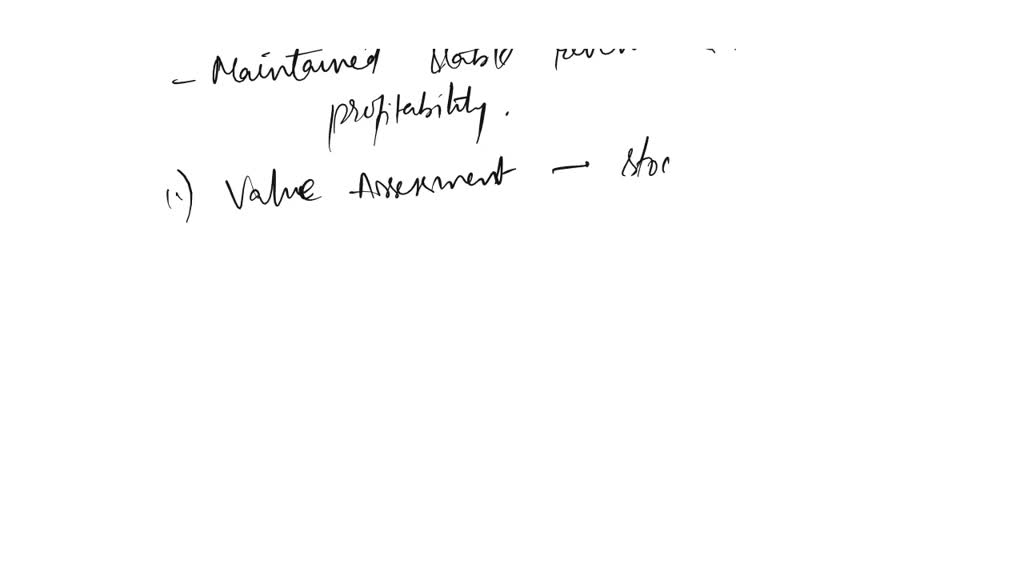 - Maintained stable
profitability.
Value Assessment - stoc